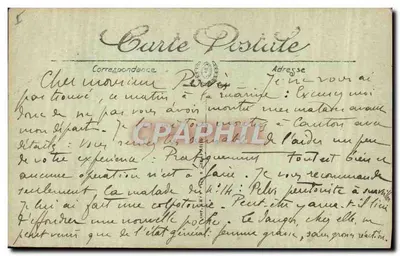 Carte Postale
Correspondance
Adresse
Cher monsieur Je ne vous ai
pas trouvé, ce matin à la marine : Excusez moi
donc de ne pas vous avoir montré mes malades avant
mon départ. Je
détails. Vous de l'aider un peu
de votre expérience : Pratiquement tout est bien et
aucune opération n'est à faire. Je vous recommande
seulement, la malade du n° 14 : Pelvi péritonite à
Je lui ai fait une colpotomie. Peut-être y aura-t-il lieu
d'effondrer une nouvelle poche. Le danger, chez elle, ne
peut venir que de l'état général : femme grasse, sans grosse réaction.
CPAPHIL